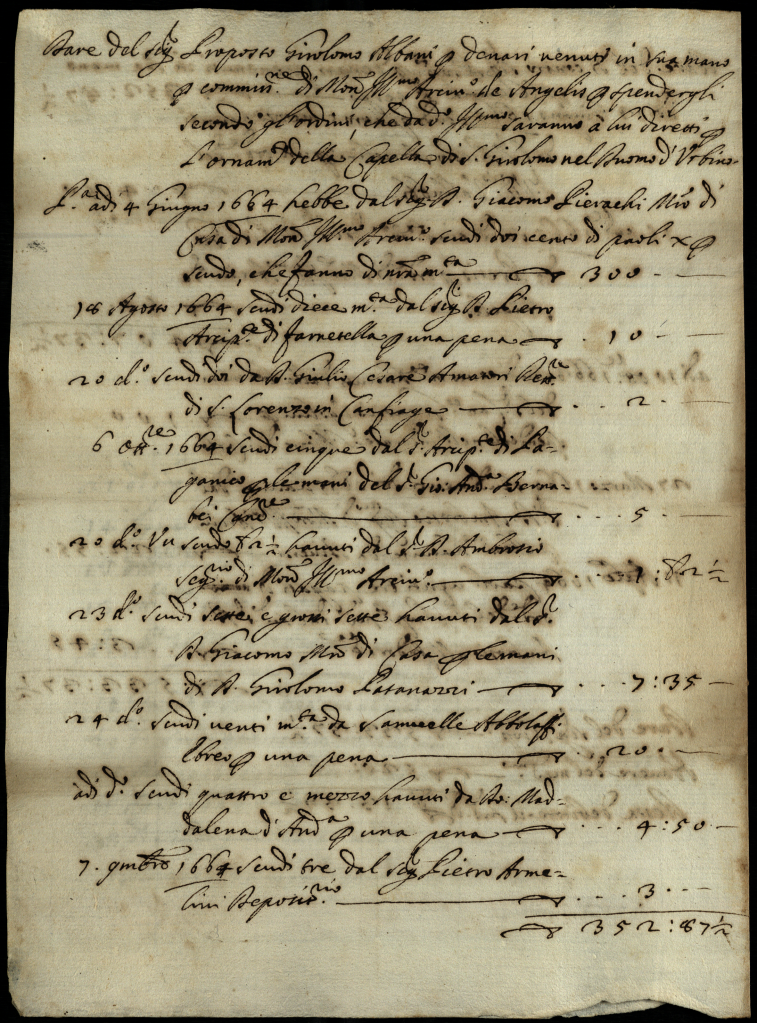 Dare del Sig.r Proposto Girolomo Albani p denari venuti in sua mano
p commiss.ne di Mons.r Ill.mo Arciv.o de Angelis p spendergli
secondo gl'ordini, che da d.o Ill.mo saranno à lui diretti p
l'ornam.to della Capella di S. Girolomo nel Duomo d'Urbino
P.a adi 4 Giugno 1664 hebbe dal Sig.r D. Giacomo Pierachi M.ro di
Casa di Mons.r Ill.mo Arciv.o scudi doi cento di paoli x p
scudo, che fanno di n.ra m.ta 300
18 Agosto 1664 scudi diece m.ta dal Sig.r D. Pietro
Arcip.te di farnetella p una pena 10
20 d.o scudi doi da D. Giulio Cesare Amatori Rett.re
di S. Lorenzo in Canfiage 2
6 Ott.re 1664 scudi cinque dal S.r Arcip.te di Pa-
ganico p le mani del S.r Gio: And.a Berna-
bei Canc.re 5
20 d.o Un scudo 82½ havuti dal S.r D. Ambrosio
Seg.rio di Mons.r Ill.mo Arciv.o 1:82½
23 d.o scudi sette e grossi sette havuti dal S.r
D. Giacomo M.ro di Casa p le mani
di D. Girolomo Patanazzi 7:35
24 d.o scudi venti m.ta da Samuelle Abbolaffi
Ebreo p una pena 20
adi d.o scudi quattro e mezzo havuti da Mad-
dalena d'And.a p una pena 4:50
7. 9mbre 1664 scudi tre dal Sig.r Pietro Arme-
lini Deposit.rio 3
352:87½